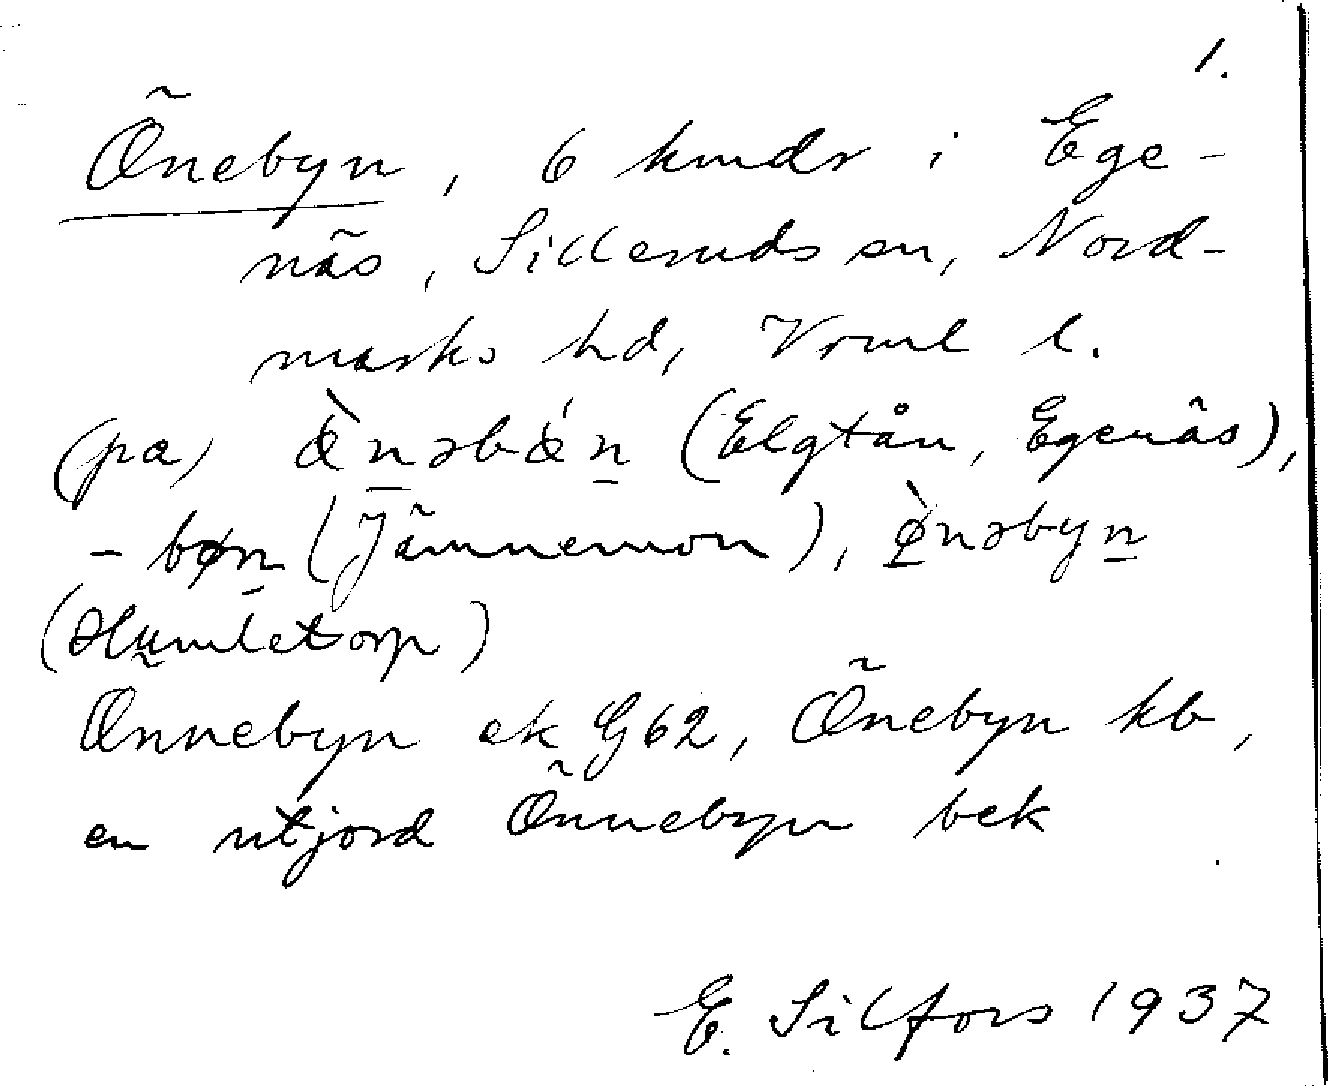 1.
Önebyn, 6 hmdr i Ege-
näs, Silleruds sn, Nord-
marks hd, Vrml l.
(pa) œ̀n̲əbœ́n̲ (Elgtån, Egenäs),
- bøn̲ (Jämnemon), ø̲̀nəbyn̲
(Humletorp)
Önnebyn ek G62, Önebyn kb,
en utjord Önnebyn bek
E. Silfors 1937